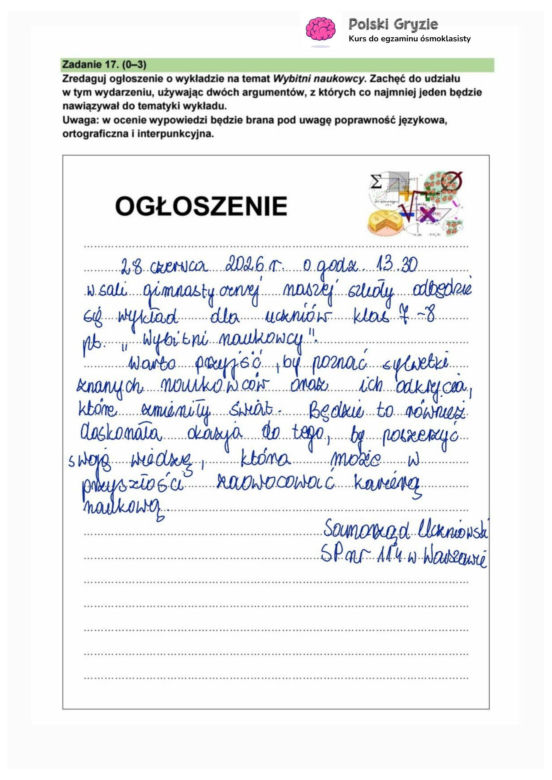 Polski Gryzie
Kurs do egzaminu ósmoklasisty
Zadanie 17. (0–3)
Zredaguj ogłoszenie o wykładzie na temat Wybitni naukowcy. Zachęć do udziału
w tym wydarzeniu, używając dwóch argumentów, z których co najmniej jeden będzie
nawiązywał do tematyki wykładu.
Uwaga: w ocenie wypowiedzi będzie brana pod uwagę poprawność językowa,
ortograficzna i interpunkcyjna.
OGŁOSZENIE
28 czerwca 2026 r. o godz. 13.30
w sali gimnastycznej naszej szkoły odbędzie
się wykład dla uczniów klas 7-8
pt. „Wybitni naukowcy".
Warto przyjść, by poznać sylwetki
znanych naukowców oraz ich odkrycia,
które zmieniły świat. Będzie to również
doskonała okazja do tego, by poszerzyć
swoją wiedzę, która może w
przyszłości zaowocować karierą
naukową.
Samorząd Uczniowski
SP nr 114 w Warszawie